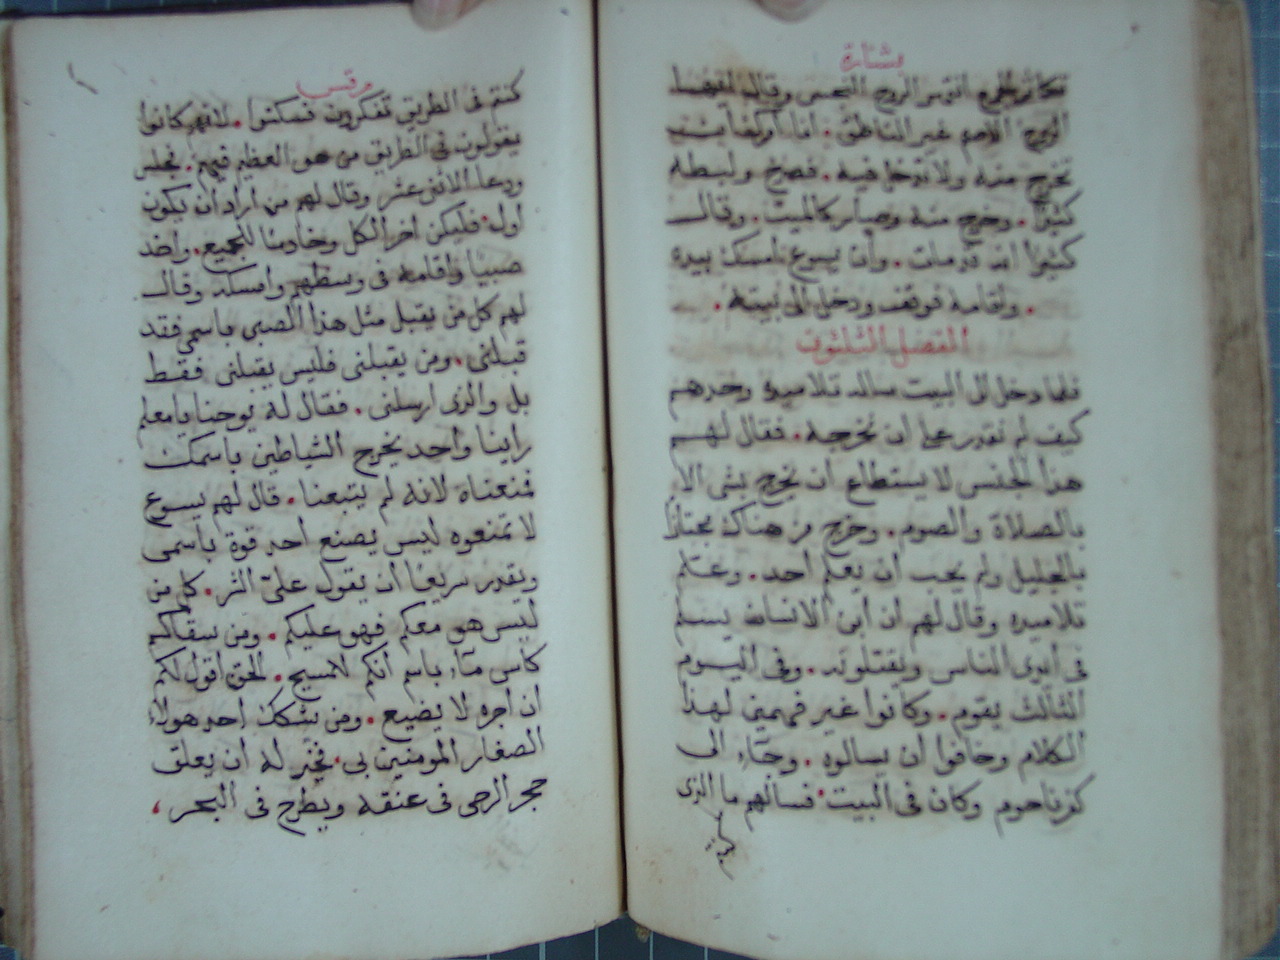 بشارة
تكاثر الجمع انتهر الروح النجس وقال له ايها
الروح الاصم غير الناطق. انا آمرك ان
تخرج منه ولا تدخل فيه. فصرخ ولبطه
كثيرًا. وخرج منه وصار كالميت. وقال
كثيرا انه قد مات. وان يسوع امسك بيده
. واقامه فوقف ودخل الى بيته.
الفصل الثلثون
فلما دخل الى البيت ساله تلاميذه وحدهم
كيف لم نقدر على ان نخرجه. فقال لهم
هذا الجنس لا يستطاع ان يخرج بشى الا
بالصلاة والصوم. وخرج من هناك مجتازا
بالجليل ولم يحب ان يعلم احد. وعلم
تلاميذه وقال لهم ان ابن الانسان يسلم
فى ايدى الناس ويقتلونه. وفى اليوم
الثالث يقوم. وكانوا غير فهمين لهذا
الكلام وخافوا ان يسالوه. وجاء الى
كفرناحوم وكان فى البيت. فسالهم ما الذى
كنتم
مرقس
كنتم فى الطريق تفكرون فسكتوا. لانهم كانوا
يقولون فى الطريق من هو العظيم فيهم. فجلس
ودعا الاثنى عشر وقال لهم من اراد ان يكون
اول. فليكن اخر الكل وخادمًا للجميع. واخذ
صبيًا واقامه فى وسطهم وامسكه وقال
لهم كل من يقبل مثل هذا الصبى باسمي فقد
قبلنى. ومن يقبلنى فليس يقبلنى فقط
بل والذى ارسلنى. فقال له يوحنا يا معلم
راينا واحد يخرج الشياطين باسمك
فمنعناه لانه لم يتبعنا. قال لهم يسوع
لا تمنعوه ليس يصنع احد قوة باسمى
ويقدر سريعًا ان يقول علىّ الشر. كل من
ليس هو معكم فهو عليكم. ومن سقاكم
كاس ماء باسم انكم للمسيح. الحق اقول لكم
ان اجره لا يضيع. ومن شكك احد هولاء
الصغار المومنين بى. فخير له ان يعلق
حجر الرحى فى عنقه ويطرح فى البحر.